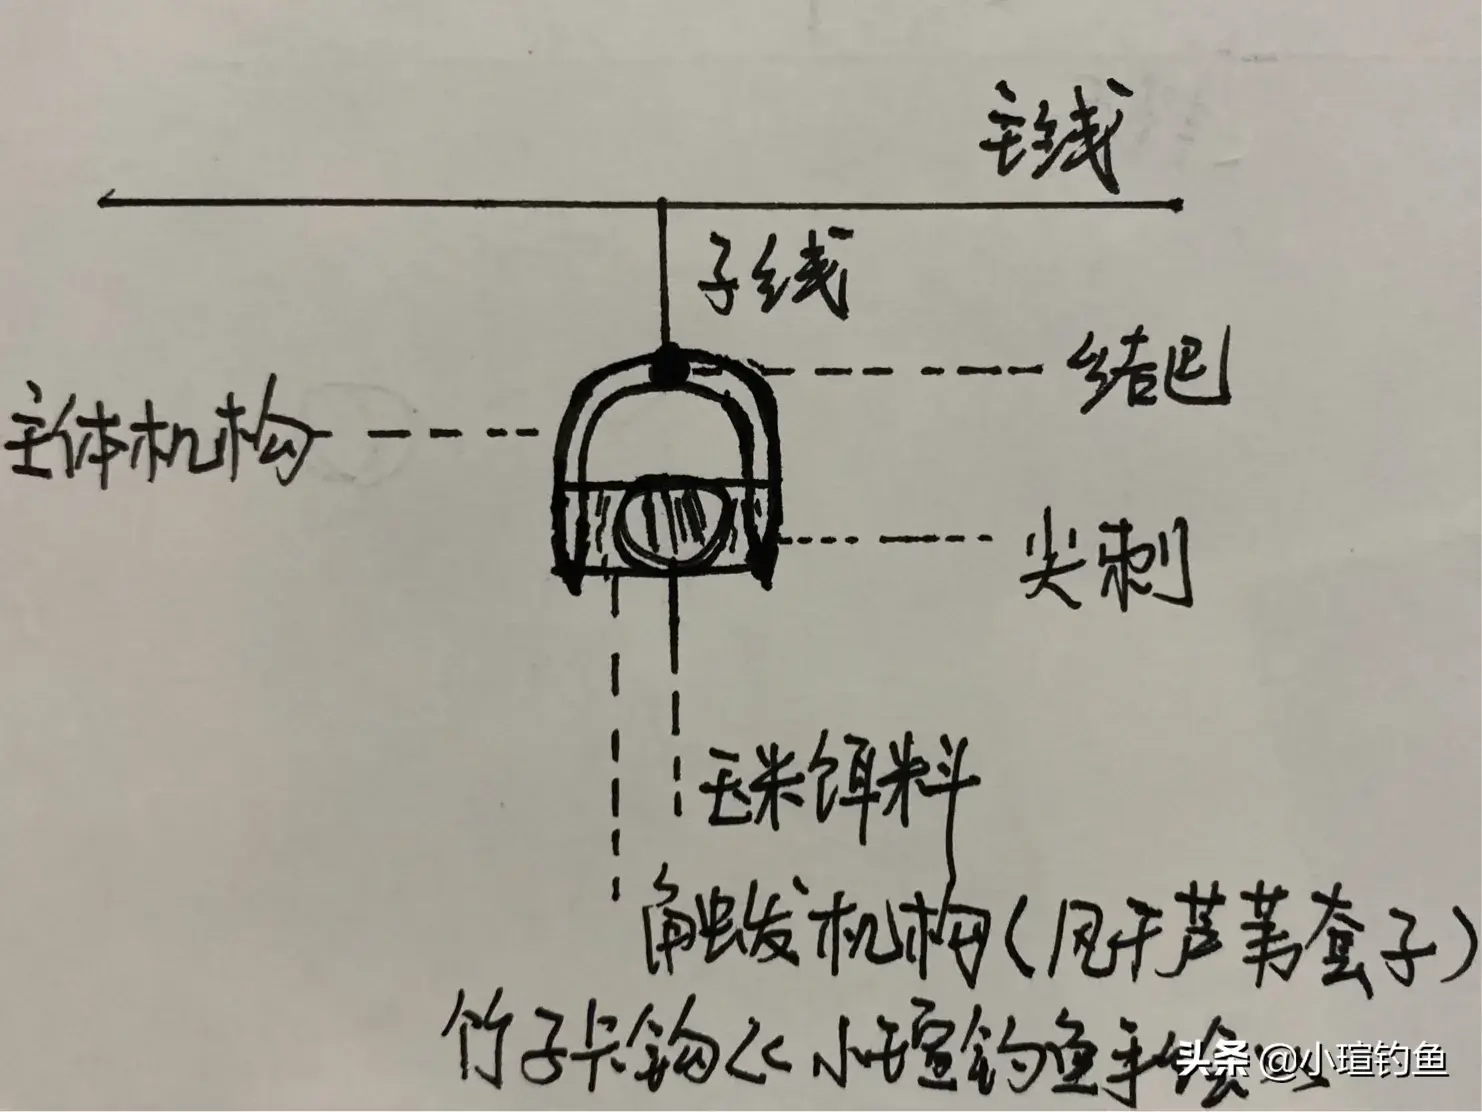 主线
子线
结巴
主体机构
尖刺
玉米饵料
触发机构(风干芦苇套子)
竹子卡钩<<小瑄钓鱼手绘>>
头条 @小瑄钓鱼